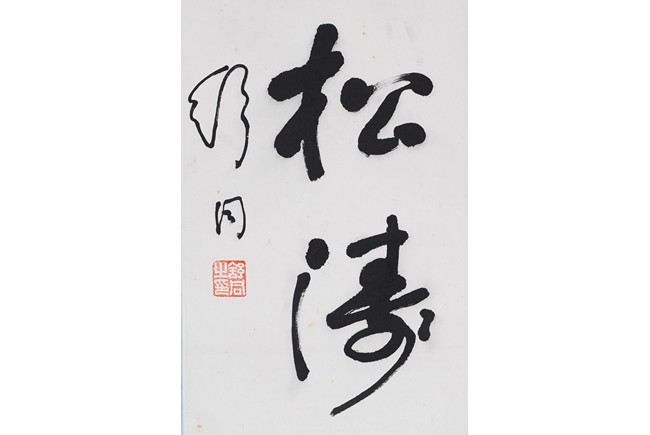 松涛
舒同
舒同之印